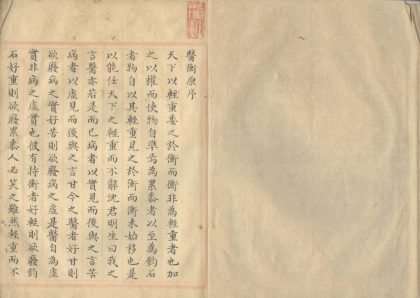 醫衡原序
天下以輕重委之於衡而衡非為輕重者也加
之以權而使物自準焉為累黍者以至為鈞石
者物自以其輕重見之於衡而衡未始移也是
以能任天下之輕重而不辭沈君明生曰我之
言醫亦若是而已病者以實見而後與之言苦
病者以虛見而後與之言甘今之醫者好甘則
欲廢病之實好苦則欲廢病之虛是醫自為虛
實非病之虛實也彼有持衡者好輕則欲廢鈞
石好重則欲廢累黍人必笑之雖然輕重而不